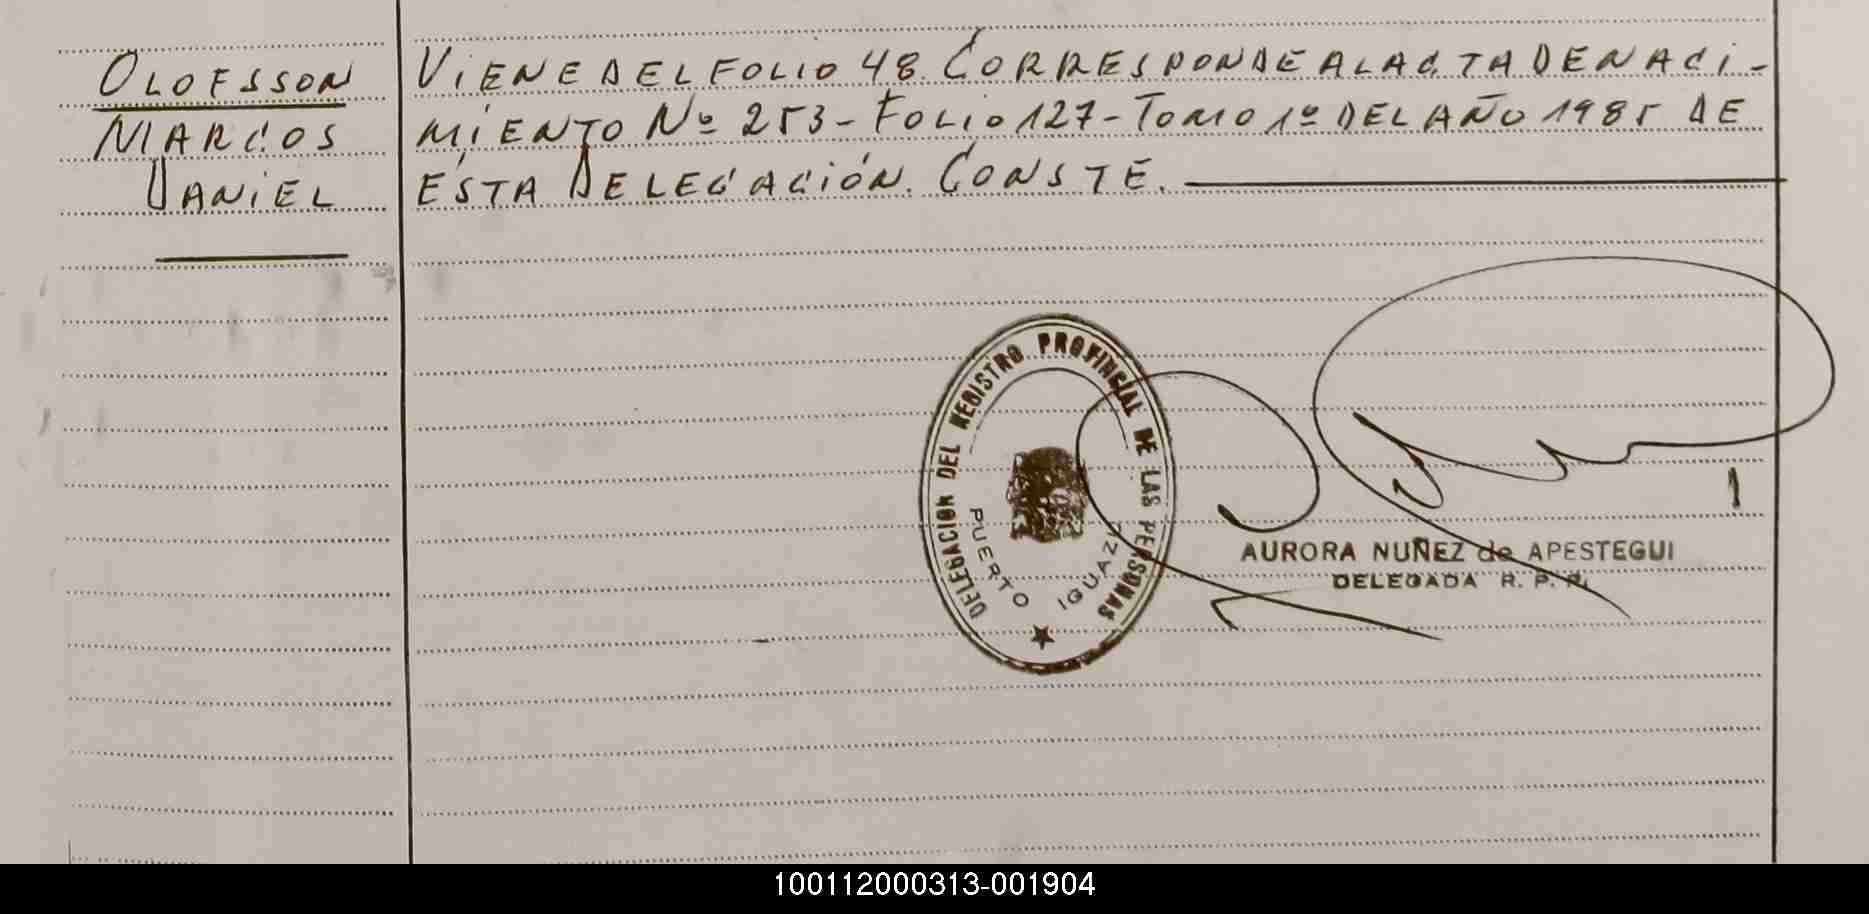 OLOFSSON
MARCOS
DANIEL
VIENE DEL FOLIO 48. CORRESPONDE A LA ACTA DE NACI-
MIENTO Nº 253 - FOLIO 127 - TOMO 1º DEL AÑO 1985 DE
ÉSTA DELEGACIÓN. CONSTE.
DELEGACION DEL REGISTRO PROVINCIAL DE LAS PERSONAS
PUERTO IGUAZU
AURORA NUÑEZ de APESTEGUI
DELEGADA R. P. P.
100112000313-001904